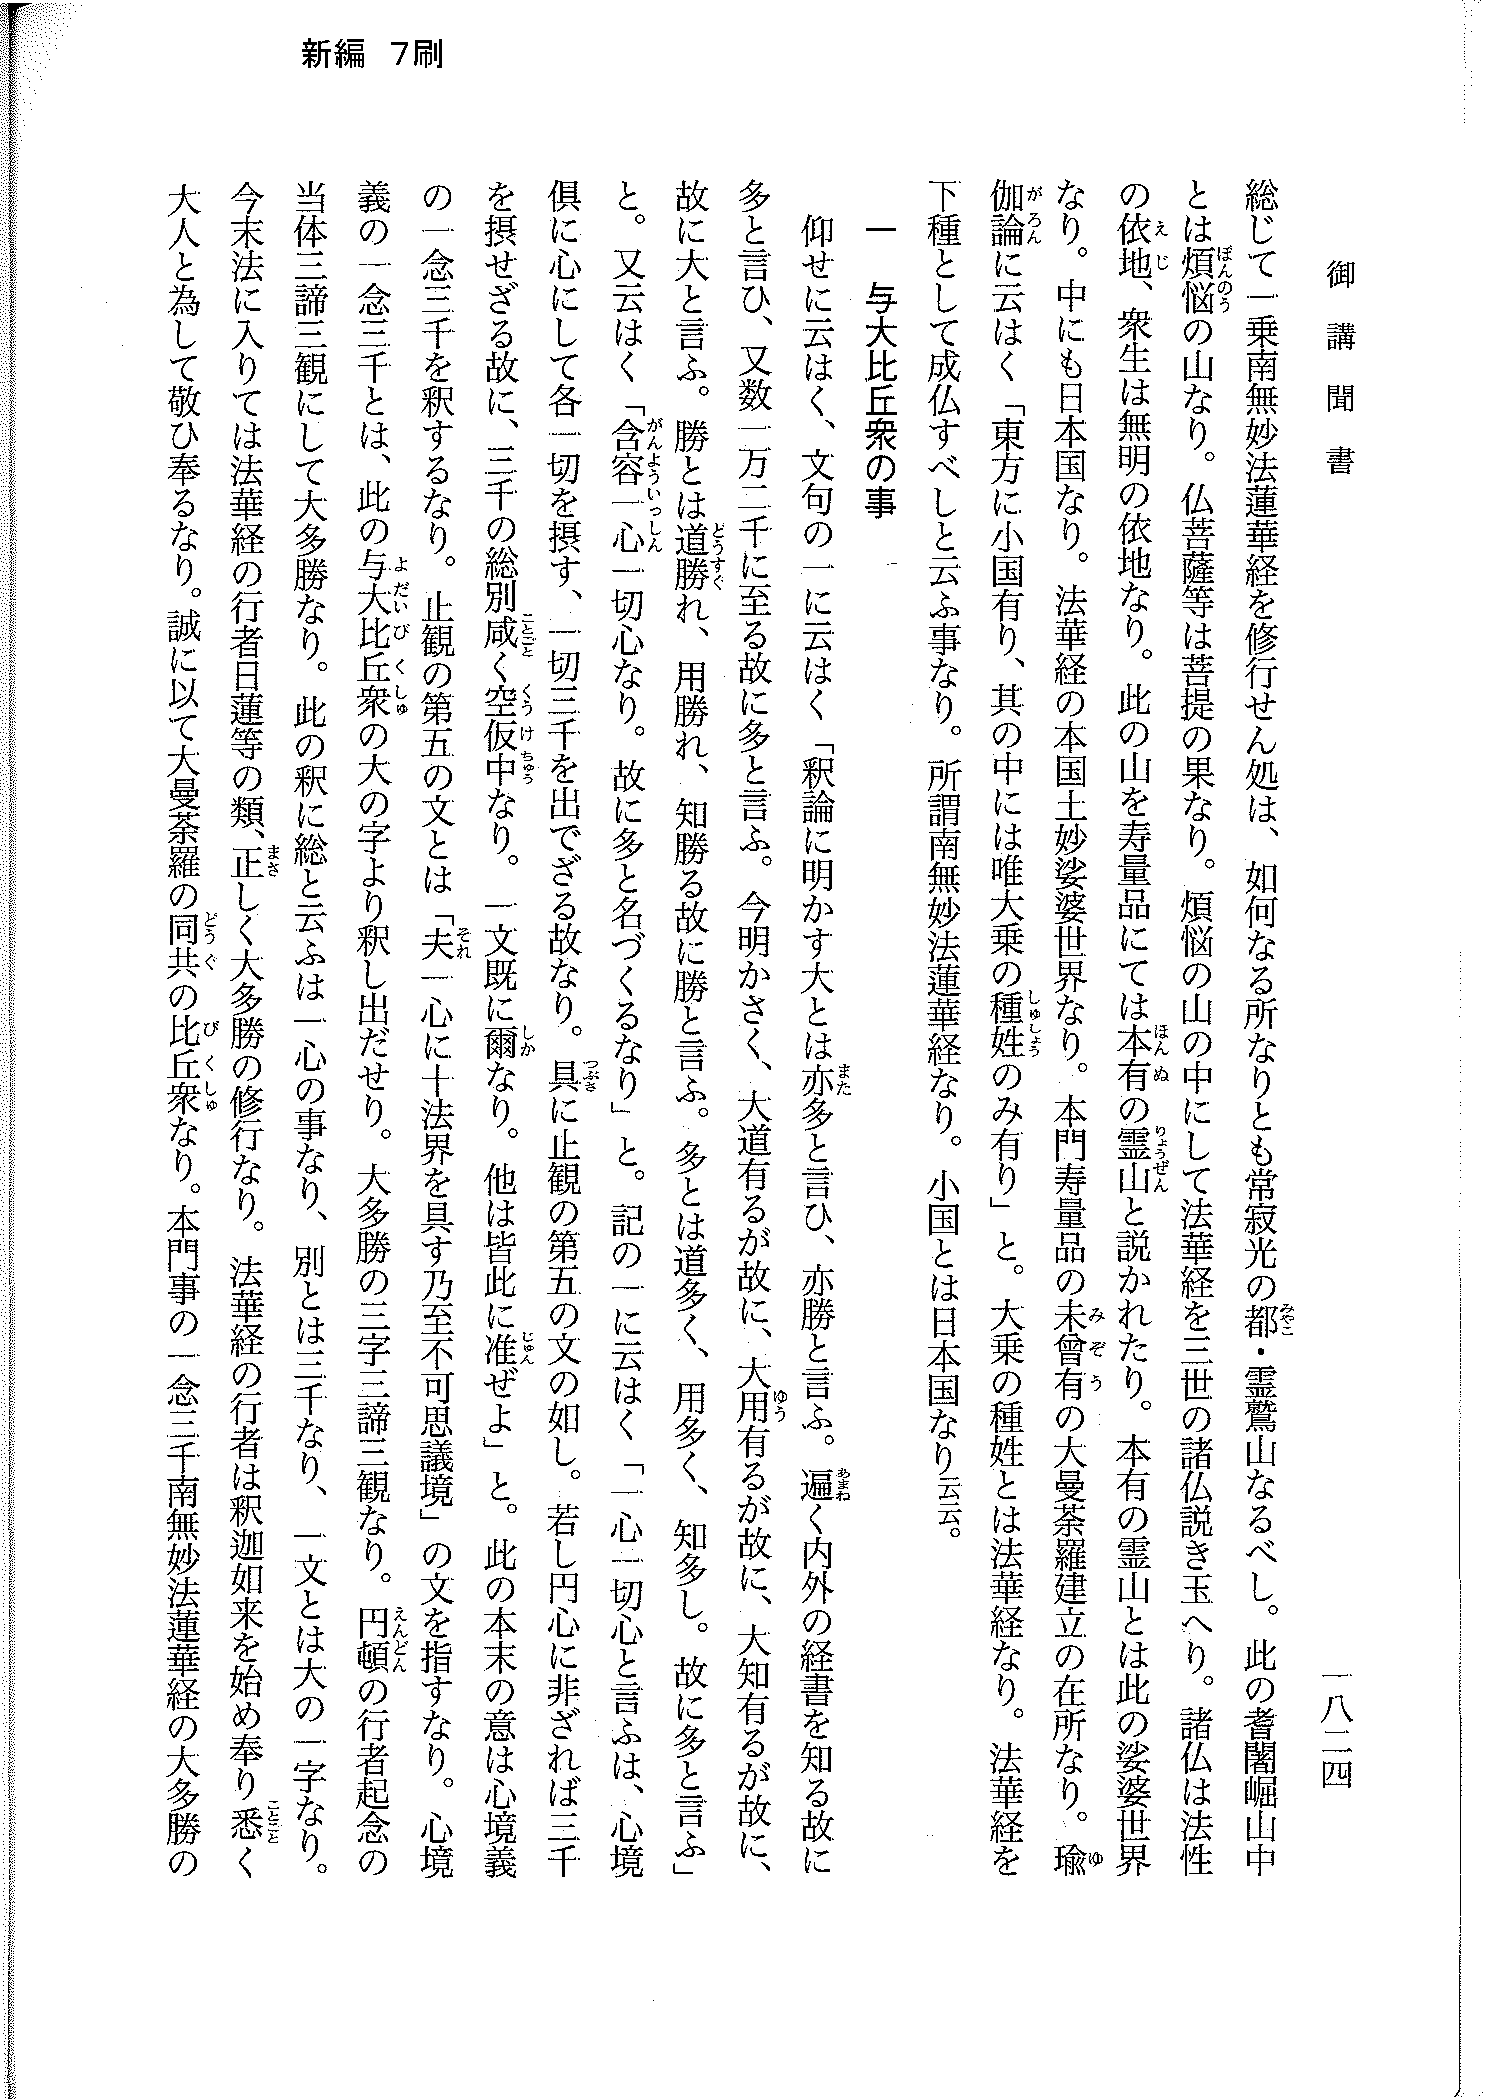 新編 7刷
御講聞書
一八二四
総じて一乗南無妙法蓮華経を修行せん処は、如何なる所なりとも常寂光の都・霊鷲山なるべし。此の耆闍崛山中
とは煩悩の山なり。仏菩薩等は菩提の果なり。煩悩の山の中にして法華経を三世の諸仏説き玉へり。諸仏は法性
の依地、衆生は無明の依地なり。此の山を寿量品にては本有の霊山と説かれたり。本有の霊山とは此の娑婆世界
なり。中にも日本国なり。法華経の本国土妙娑婆世界なり。本門寿量品の未曾有の大曼荼羅建立の在所なり。瑜
伽論に云はく「東方に小国有り、其の中には唯大乗の種姓のみ有り」と。大乗の種姓とは法華経なり。法華経を
下種として成仏すべしと云ふ事なり。所謂南無妙法蓮華経なり。小国とは日本国なり云云。
一 与大比丘衆の事
仰せに云はく、文句の一に云はく「釈論に明かす大とは亦多と言ひ、亦勝と言ふ。遍く内外の経書を知る故に
多と言ひ、又数一万二千に至る故に多と言ふ。今明かさく、大道有るが故に、大用有るが故に、大知有るが故に、
故に大と言ふ。勝とは道勝れ、用勝れ、知勝る故に勝と言ふ。多とは道多く、用多く、知多し。故に多と言ふ」
と。又云はく「含容一心一切心なり。故に多と名づくるなり」と。記の一に云はく「一心一切心と言ふは、心境
倶に心にして各一切を摂す、一切三千を出でざる故なり。具に止観の第五の文の如し。若し円心に非ざれば三千
を摂せざる故に、三千の総別咸く空仮中なり。一文既に爾なり。他は皆此に准ぜよ」と。此の本末の意は心境義
の一念三千を釈するなり。止観の第五の文とは「夫一心に十法界を具す乃至不可思議境」の文を指すなり。心境
義の一念三千とは、此の与大比丘衆の大の字より釈し出だせり。大多勝の三字三諦三観なり。円頓の行者起念の
当体三諦三観にして大多勝なり。此の釈に総と云ふは一心の事なり、別とは三千なり、一文とは大の一字なり。
今末法に入りては法華経の行者日蓮等の類、正しく大多勝の修行なり。法華経の行者は釈迦如来を始め奉り悉く
大人と為して敬ひ奉るなり。誠に以て大曼荼羅の同共の比丘衆なり。本門事の一念三千南無妙法蓮華経の大多勝の